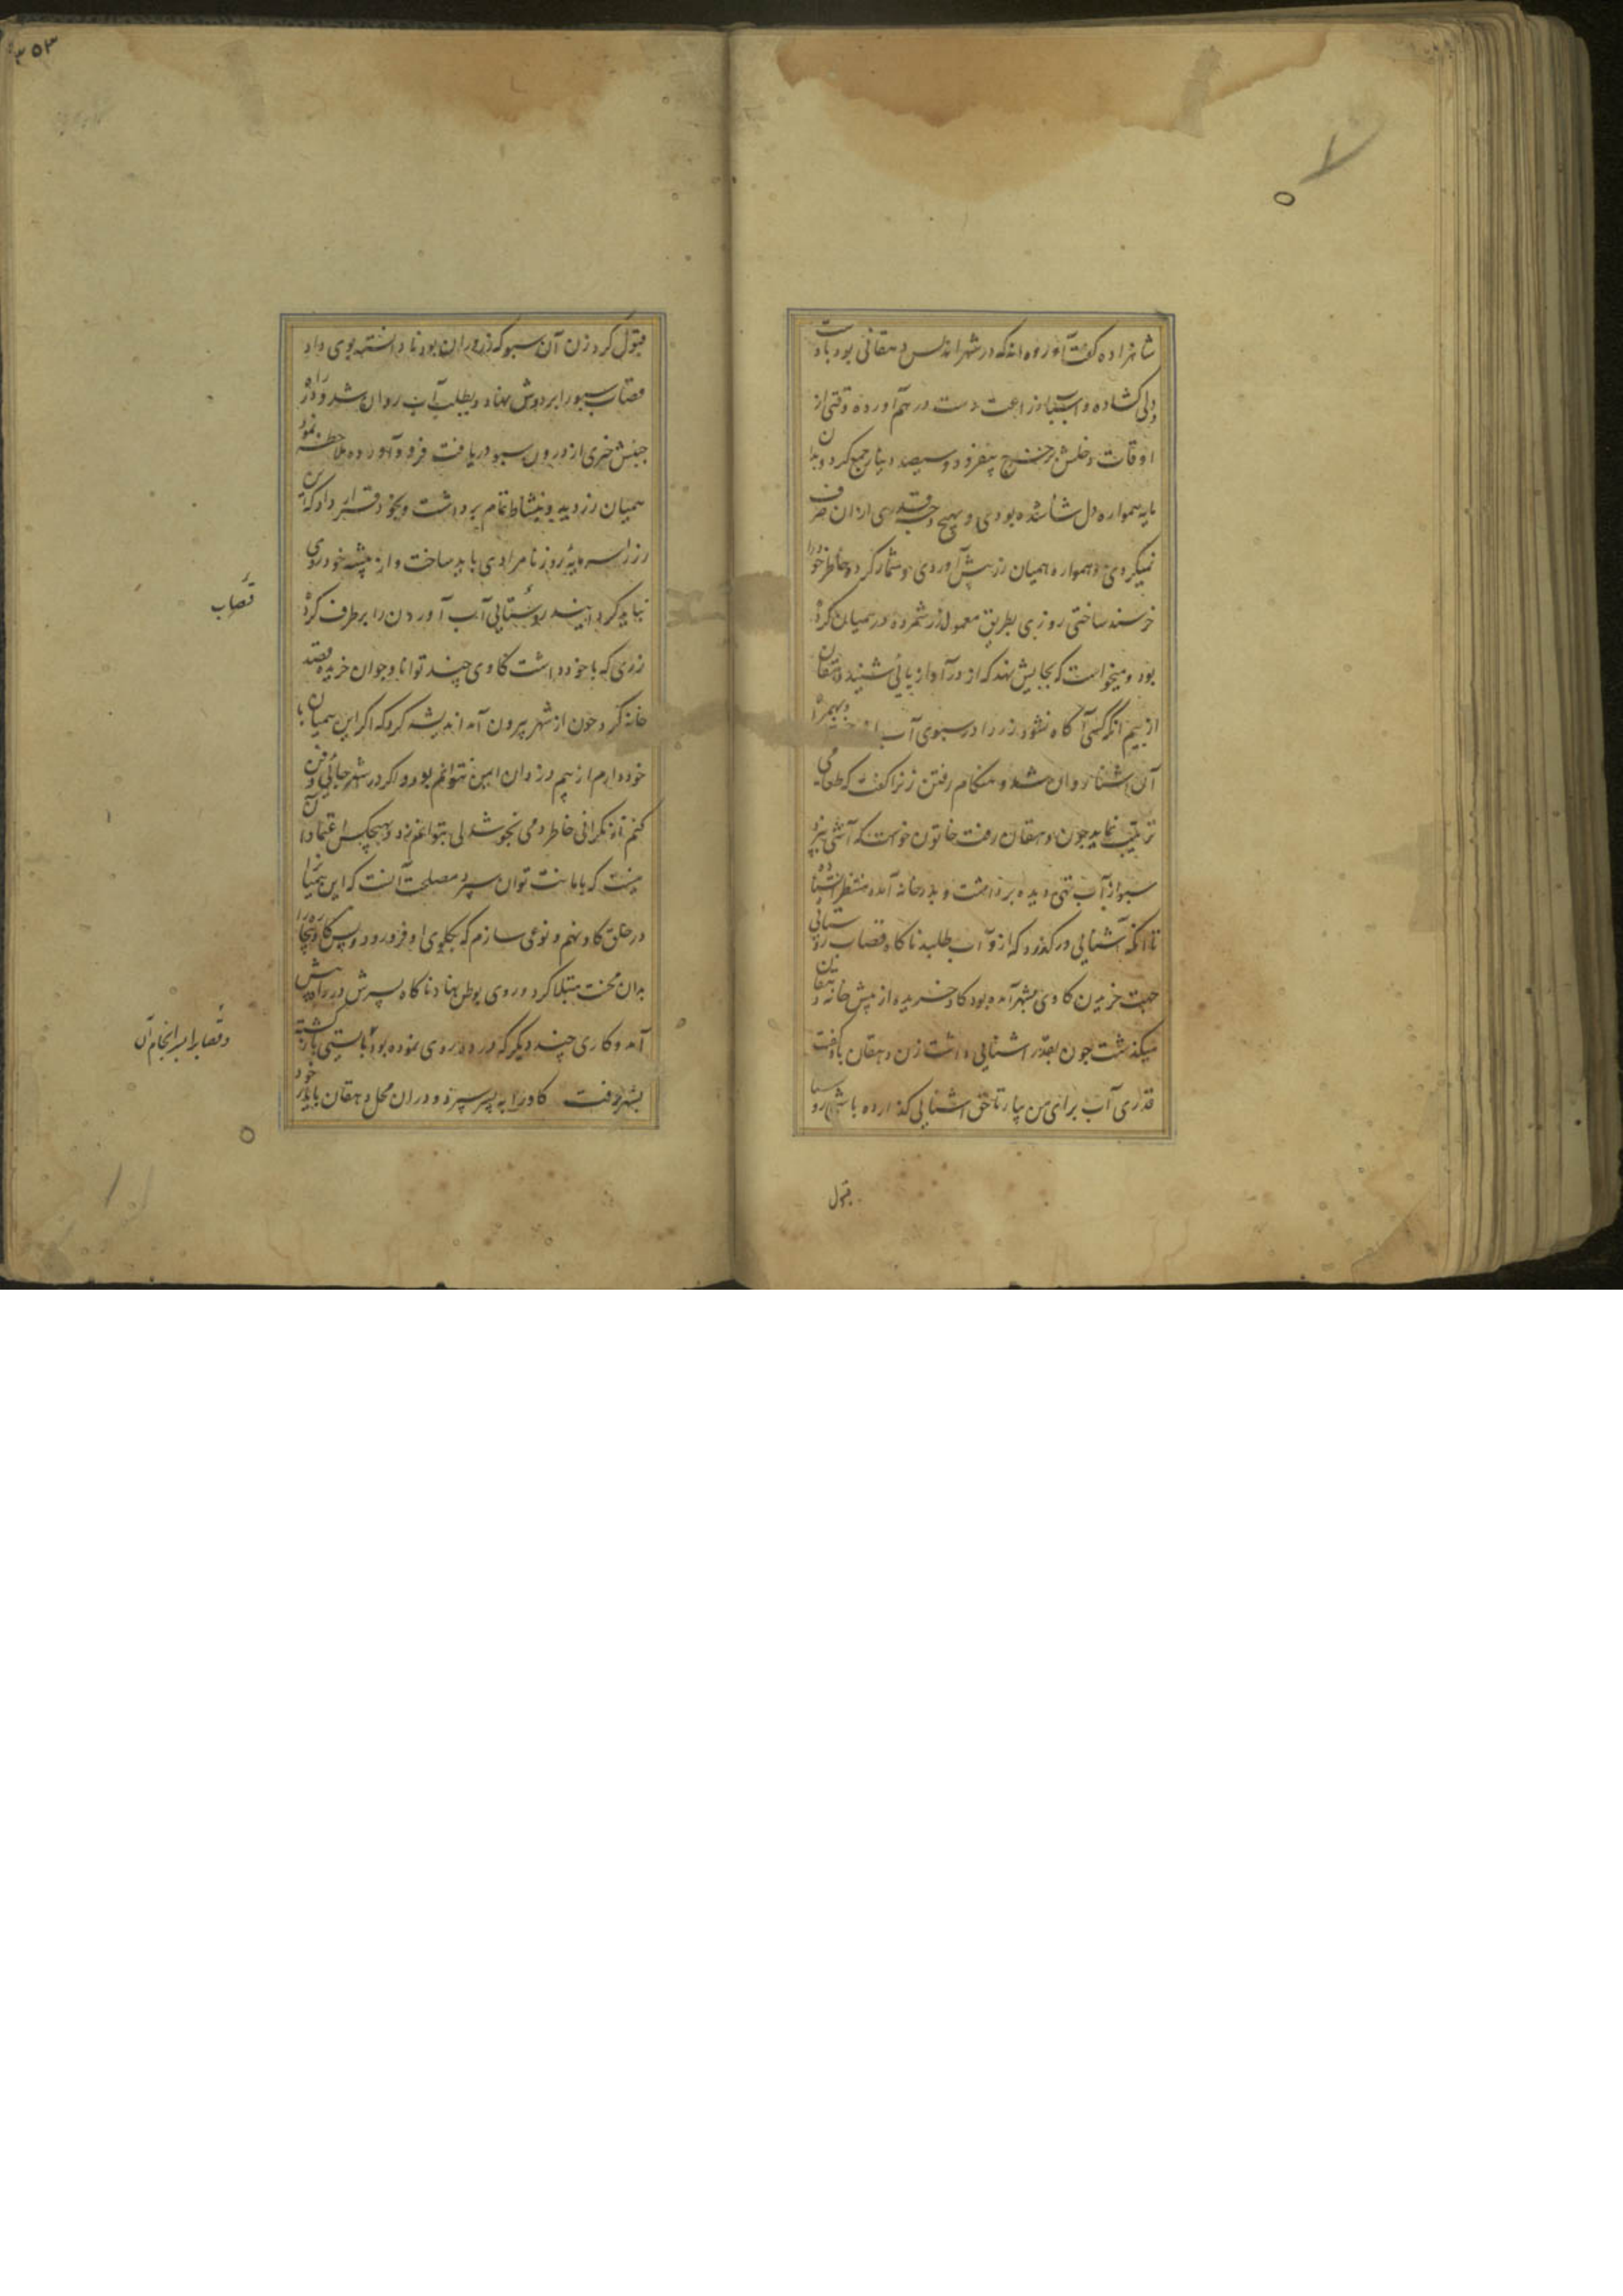 شاهزاده گفت آورده‌اند که در شهر اندلس دهقانی بود با دست
و دلی گشاده و اسباب زراعت دست درهم آورده وقتی از
اوقات دخلش بر خرج بیفزود و سیصد دینار جمع کرد و بدان
مایه همواره دل شاد بودی و بهیچ وجه قدری از آن صرف
نمیکردی و همواره همیان زر پیش آوردی و شمار کردی و خاطر خود را
خرسند ساختی روزی بطریق معمول زر شمرده در همیان کرده
بود و میخواست که بجایش نهد که از در آواز پائی شنید دهقان
از بیم آنکه کسی آگاه نشود زر را در سبوی آب
آن آشنا روان شد و هنگام رفتن زنرا گفت که طعامی
ترتیب نماید چون دهقان رفت خاتون خواست که آشی پزد
سبو از آب تهی دیده برداشت و بدر خانه آمده منتظر ایستاده
تا آنکه آشنایی در گذرد که ازو آب طلبد ناگاه قصاب روستایی
جهت خریدن گاوی بشهر آمده بود گاو خریده از پیش خانه دهقان
میگذشت چون بقدر آشنایی داشت زن دهقان با او گفت
قدری آب برای من بیار تا حق آشنایی گذارده باشی روستا
قبول
۳۵۳
قبول کرد زن آن سبو که زر در آن بود نادانسته بوی داد
قصاب سبو را بر دوش نهاد و بطلب آب روان شد در راه
جنبش چیزی از درون سبو دریافت فرود آورده ملاحظه نمود
همیان زر دید و بنشاط تمام برداشت و بخود قرار داد که این
زر را سرمایه روز نامرادی باید ساخت و از پیشه خود دوری
نباید کرد روستایی آب آوردن را برطرف کرد
قصاب
زری که با خود داشت گاوی چند توانا و جوان خریده قصد
خانه کرد چون از شهر بیرون آمد اندیشه کرد که اگر این همیان با
خود دارم از بیم دزدان ایمن نتوانم بود و اگر در شهر جائی دفن
کنم از نگرانی خاطر دمی نخوشدلی نتوانم زد و بهیچکس اعتماد آن
نیست که باامانت توان سپرد مصلحت آنست که این همیان را
در حلق گاو نهم و نوعی سازم که بگلوی او فرو رود و پس گاو بیچاره را
بدان محنت مبتلا کرد و روی بوطن نهاد ناگاه پسرش در راه پیش
آمد و کاری چند دیگر که در ده روی نموده بود بایستی بازگشته
و قصاب را سرانجام آن
بشهر رفت گاو را به پسر سپرد و در آن محل دهقان با پدر خود